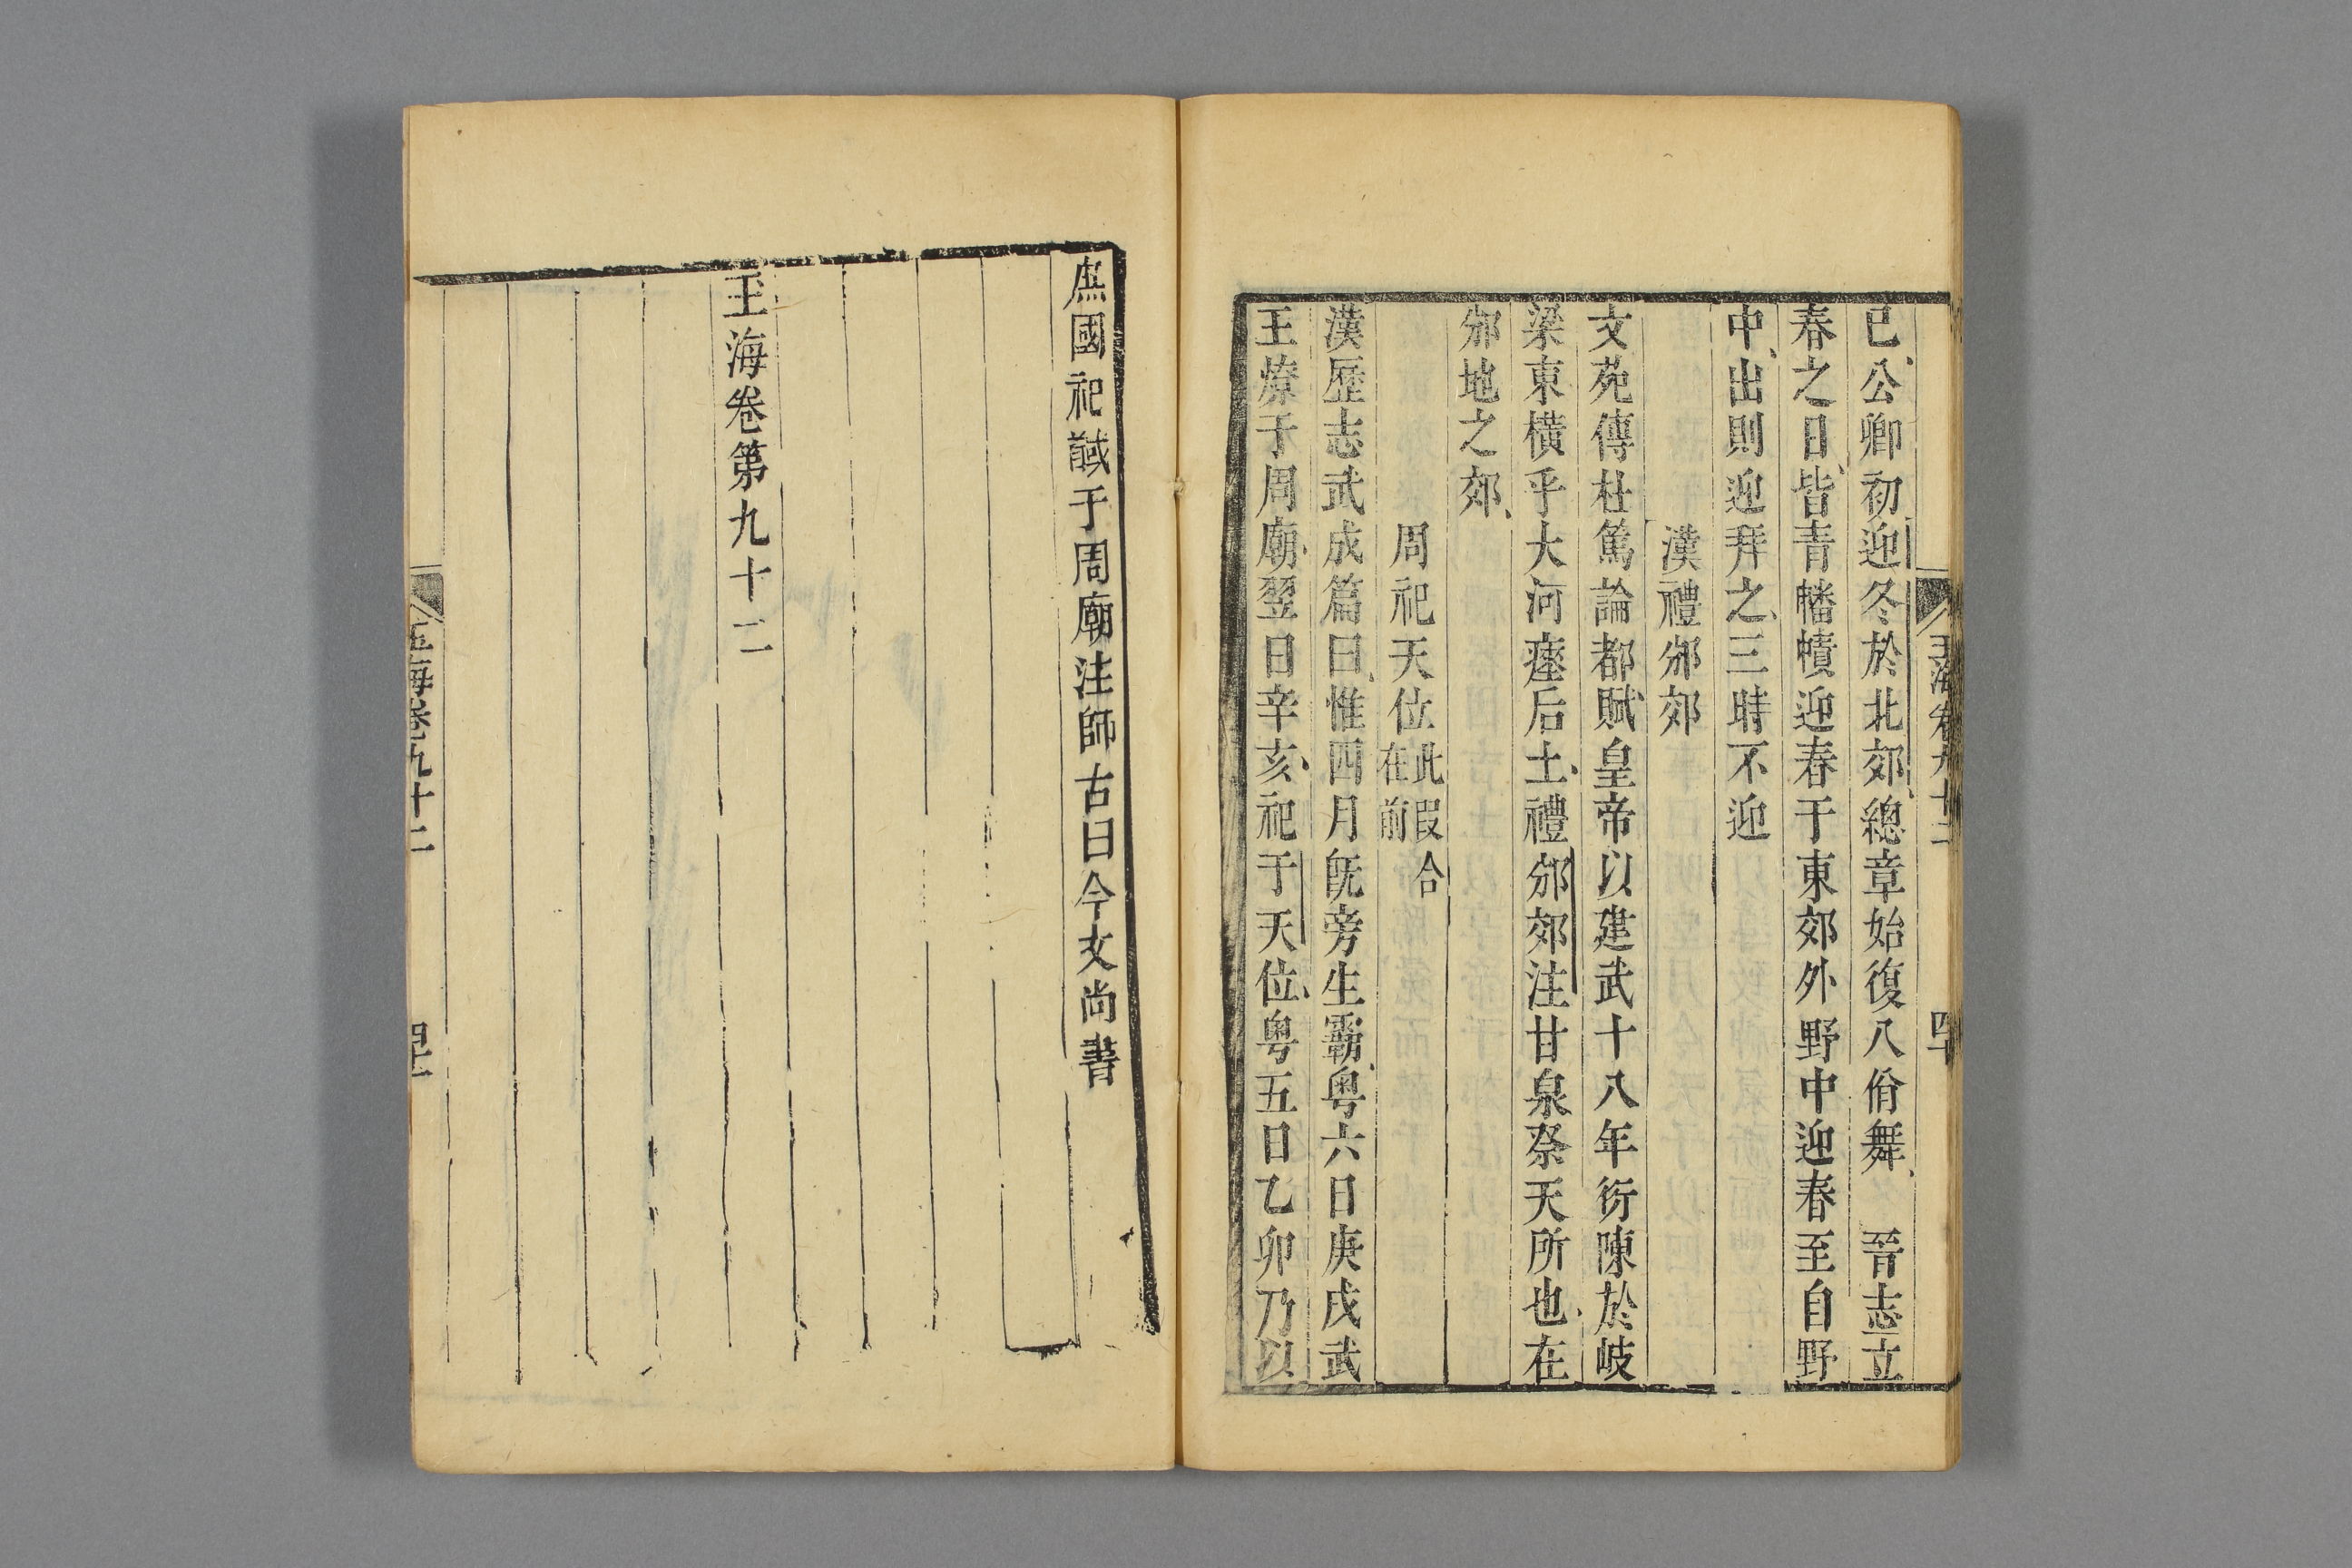 玉海卷九十二
四十
已公卿初迎冬於北郊總章始復八佾舞　晉志立
春之日皆青幡幘迎春于東郊外野中迎春至自野
中出則迎拜之三時不迎
漢禮邠郊
文苑傳杜篤論都賦皇帝以建武十八年衍陳於岐
梁東橫乎大河瘞后土禮邠郊注甘泉祭天所也在
邠地之郊
周祀天位此叚合在前
漢歷志武成篇曰惟四月旣旁生霸粤六日庚戌武
王燎于周廟翌日辛亥祀于天位粤五日乙卯乃以
庶國祀馘于周廟注師古曰今文尚書
玉海卷第九十二
玉海卷九十二
四十一